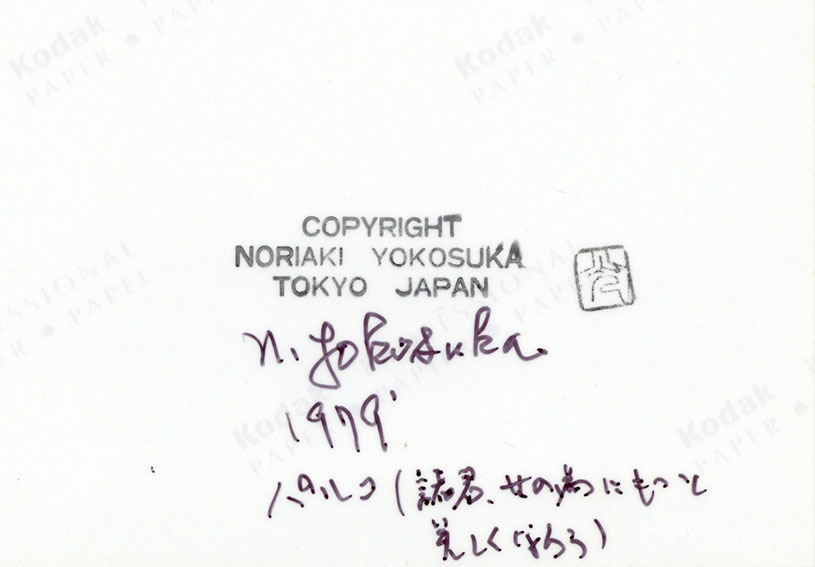 Kodak
PAPER • PAPE
Kodak
PAPER •
COPYRIGHT
NORIAKI YOKOSUKA
TOKYO JAPAN
ESSIONAL
ER • PAPER
n. yokosuka.
1979'
Kodak
Kodak
PAPER •
パルコ(諸君、女の為にもっと
美しくなろう)